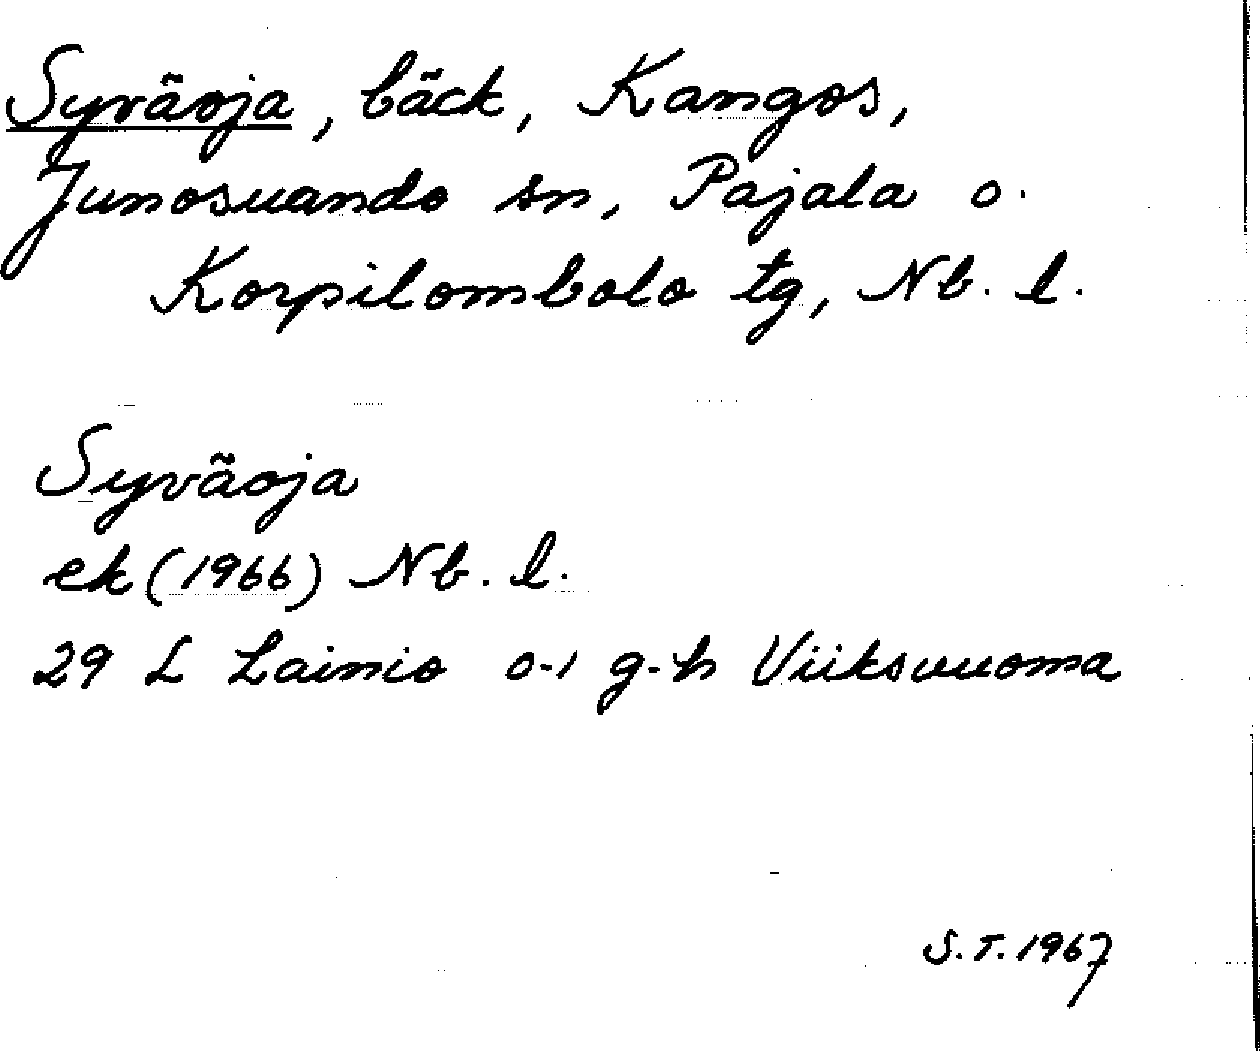 Syväoja, bäck, Kangos,
Junosuando sn, Pajala o.
Korpilombolo tg, Nb. l.
Syväoja
ek (1966) Nb. l.
29 L Lainio 0-1 g-h Viiksvuoma
S.T. 1967